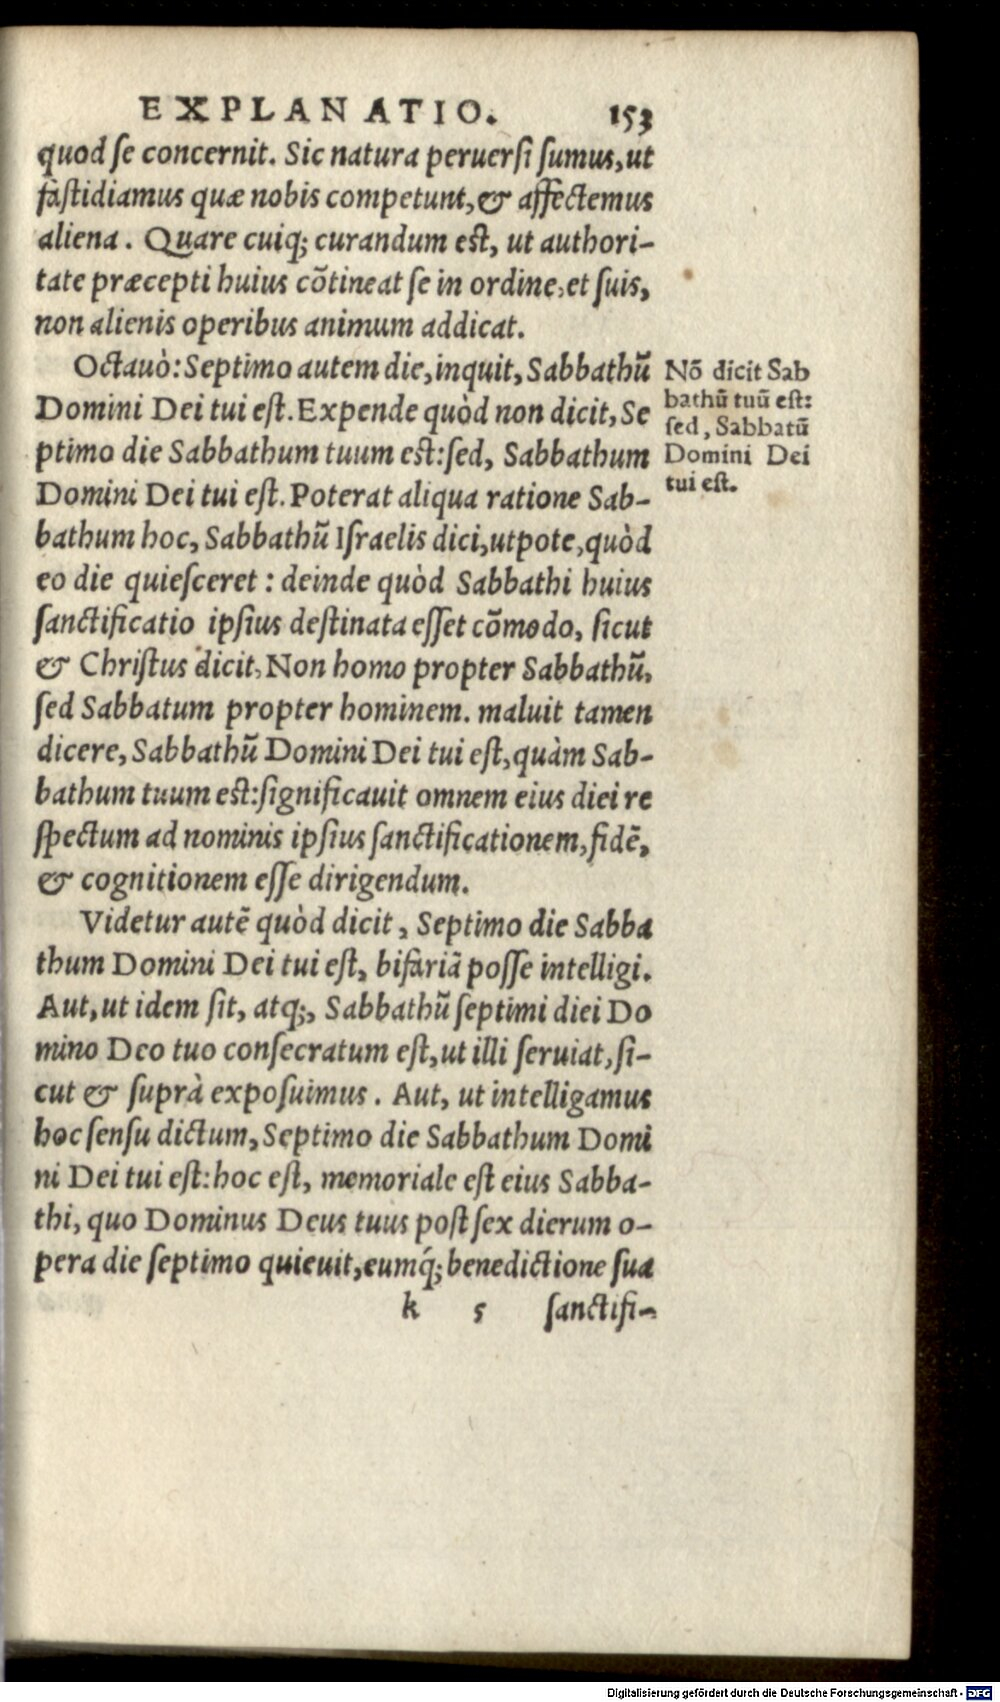 EXPLANATIO. 153
quod ſe concernit. Sic natura peruerſi ſumus, ut
faſtidiamus quæ nobis competunt, & affectemus
aliena. Quare cuiq; curandum eſt, ut authori-
tate præcepti huius cõtineat ſe in ordine, et ſuis,
non alienis operibus animum addicat.
Octauò: Septimo autem die, inquit, Sabbathũ
Domini Dei tui eſt. Expende quòd non dicit, Se
ptimo die Sabbathum tuum eſt: ſed, Sabbathum
Domini Dei tui eſt. Poterat aliqua ratione Sab-
bathum hoc, Sabbathũ Iſraelis dici, utpote, quòd
eo die quieſceret: deinde quòd Sabbathi huius
ſanctificatio ipſius deſtinata eſſet cõmodo, ſicut
& Chriſtus dicit, Non homo propter Sabbathũ,
ſed Sabbatum propter hominem. maluit tamen
dicere, Sabbathũ Domini Dei tui eſt, quàm Sab-
bathum tuum eſt: ſignificauit omnem eius diei re
ſpectum ad nominis ipſius ſanctificationem, fidẽ,
& cognitionem eſſe dirigendum.
Nõ dicit Sab
bathũ tuũ eſt:
ſed, Sabbatũ
Domini Dei
tui eſt.
Videtur autẽ quòd dicit, Septimo die Sabba
thum Domini Dei tui eſt, bifariã poſſe intelligi.
Aut, ut idem ſit, atq;, Sabbathũ ſeptimi diei Do
mino Deo tuo conſecratum eſt, ut illi ſeruiat, ſi-
cut & ſuprà expoſuimus. Aut, ut intelligamus
hoc ſenſu dictum, Septimo die Sabbathum Domi
ni Dei tui eſt: hoc eſt, memoriale eſt eius Sabba-
thi, quo Dominus Deus tuus poſt ſex dierum o-
pera die ſeptimo quieuit, eumq́; benedictione ſua
k 5 ſanctifi-
Digitalisierung gefördert durch die Deutsche Forschungsgemeinschaft - DFG